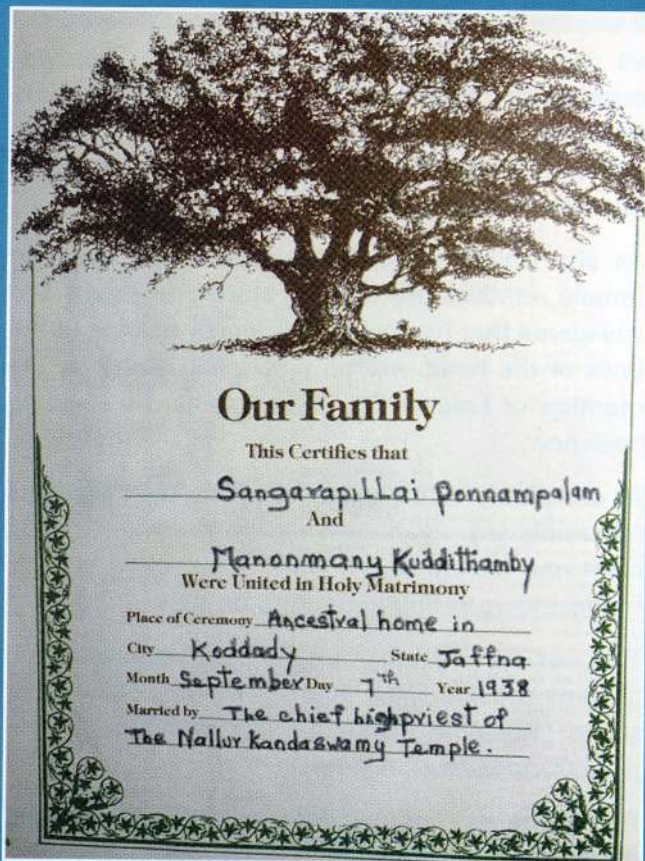 Our Family
This Certifies that
Sangarapillai Ponnampalam
And
Manonmany Kuddithamby
Were United in Holy Matrimony
Place of Ceremony Ancestral home in
City Koddady State Jaffna
Month September Day 7th Year 1938
Married by The chief highpriest of
The Nallur Kandaswamy Temple.